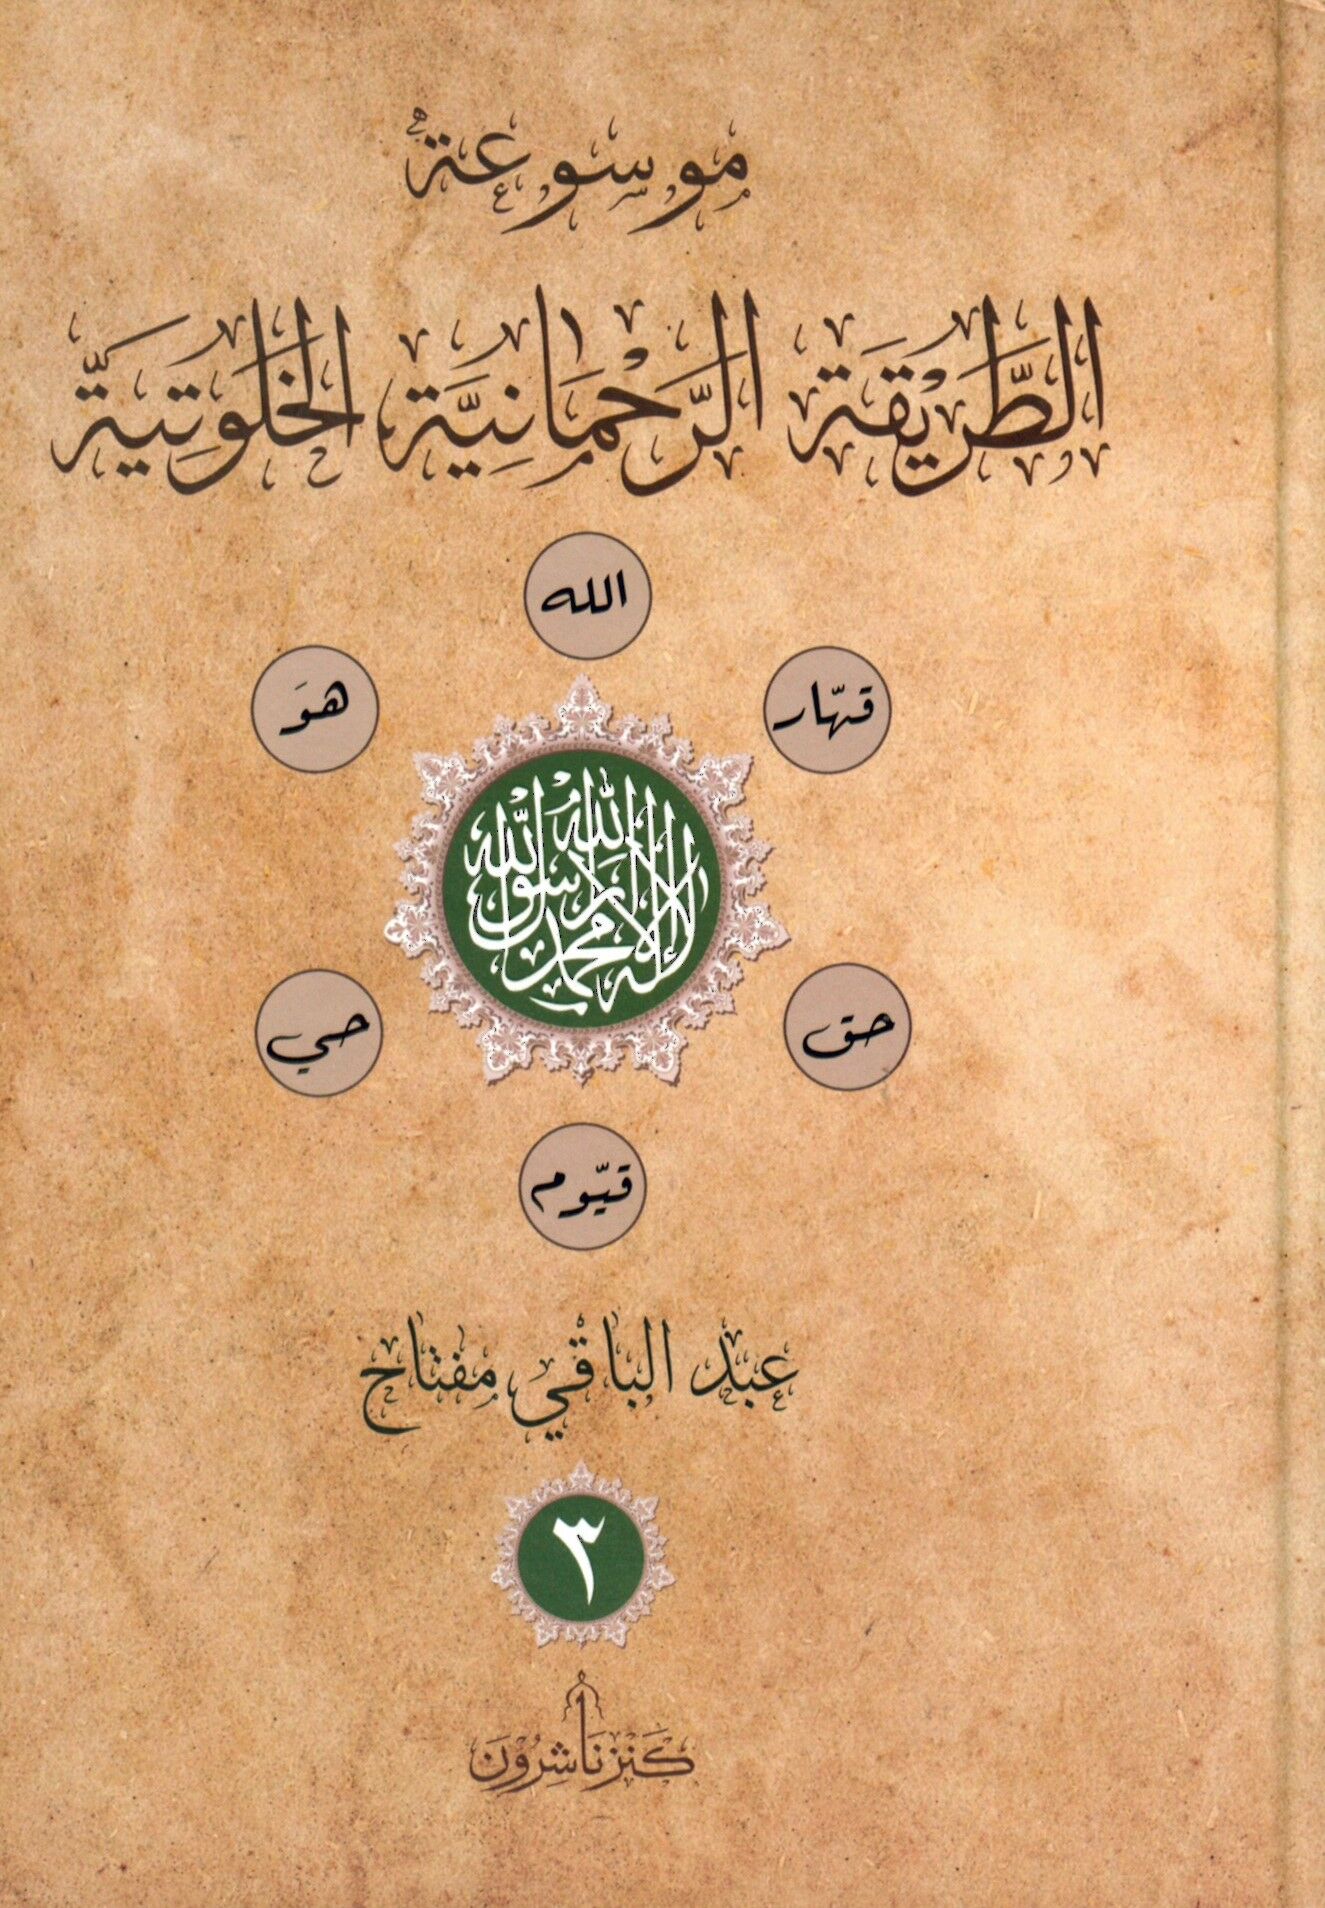 موسوعة
الطَّرِيقَة الرَّحْمَانِيَّة الخَلْوَتِيَّة
الله
قهّار
هوَ
لا إله إلا الله محمد رسول الله
حق
حي
قيّوم
عبد الباقي مفتاح
٣
كَنز نَاشِرُونَ